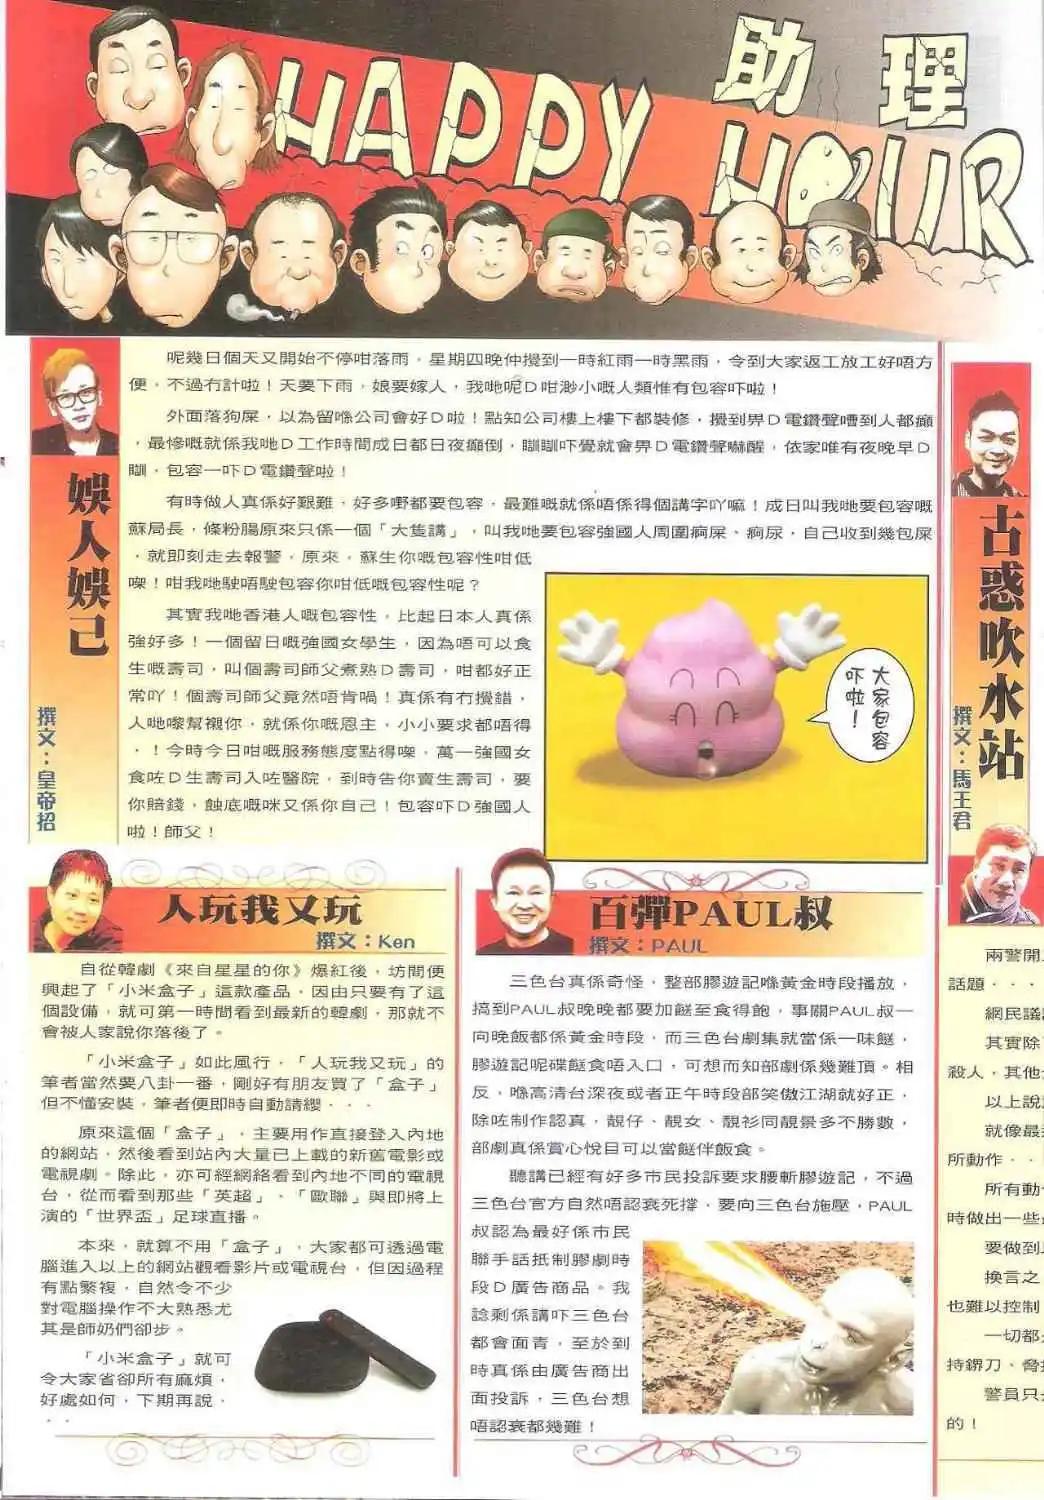 助理
HAPPY HOUR
娛人娛己
撰文：皇帝招
呢幾日個天又開始不停咁落雨，星期四晚仲攪到一時紅雨一時黑雨，令到大家返工放工好唔方
便，不過冇計啦！天要下雨，娘要嫁人，我哋呢D咁渺小嘅人類惟有包容吓啦！
外面落狗屎，以為留喺公司會好D啦！點知公司樓上樓下都裝修，攪到畀D電鑽聲嘈到人都癲
，最慘嘅就係我哋D工作時間成日都日夜癲倒，瞓瞓吓覺就會畀D電鑽聲嚇醒，依家唯有夜晚早D
瞓，包容一吓D電鑽聲啦！
有時做人真係好艱難，好多嘢都要包容，最難嘅就係唔係得個講字吖嘛！成日叫我哋要包容嘅
蘇局長，條粉腸原來只係一個「大隻講」，叫我哋要包容強國人周圍痾屎、痾尿，自己收到幾包屎
，就即刻走去報警，原來，蘇生你嘅包容性咁低
㗎！咁我哋駛唔駛包容你咁低嘅包容性呢？
其實我哋香港人嘅包容性，比起日本人真係
強好多！一個留日嘅強國女學生，因為唔可以食
生嘅壽司，叫個壽司師父煮熟D壽司，咁都好正
常吖！個壽司師父竟然唔肯喎！真係有冇攪錯，
人哋嚟幫襯你，就係你嘅恩主，小小要求都唔得
，！今時今日咁嘅服務態度點得㗎，萬一強國女
食咗D生壽司入咗醫院，到時告你賣生壽司，要
你賠錢，蝕底嘅咪又係你自己！包容吓D強國人
啦！師父！
大家包容
吓啦！
古惑吹水站
撰文：馬王君
人玩我又玩
撰文：Ken
自從韓劇《來自星星的你》爆紅後，坊間便
興起了「小米盒子」這款產品，因由只要有了這
個設備，就可第一時間看到最新的韓劇，那就不
會被人家說你落後了。
「小米盒子」如此風行，「人玩我又玩」的
筆者當然要八卦一番，剛好有朋友買了「盒子」
但不懂安裝，筆者便即時自動請纓．．．
原來這個「盒子」，主要用作直接登入內地
的網站，然後看到站內大量已上載的新舊電影或
電視劇。除此，亦可經網絡看到內地不同的電視
台，從而看到那些「英超」、「歐聯」與即將上
演的「世界盃」足球直播。
本來，就算不用「盒子」，大家都可透過電
腦進入以上的網站觀看影片或電視台，但因過程
有點繁複，自然令不少
對電腦操作不大熟悉尤
其是師奶們卻步。
「小米盒子」就可
令大家省卻所有麻煩，
好處如何，下期再說．
．．
百彈PAUL叔
撰文：PAUL
三色台真係奇怪，整部膠遊記喺黃金時段播放，
搞到PAUL叔晚晚都要加餸至食得飽，事關PAUL叔一
向晚飯都係黃金時段，而三色台劇集就當係一味餸，
膠遊記呢碟餸食唔入口，可想而知部劇係幾難頂。相
反，喺高清台深夜或者正午時段部笑傲江湖就好正，
除咗制作認真，靚仔、靚女、靚衫同靚景多不勝數，
部劇真係賞心悅目可以當餸伴飯食。
聽講已經有好多市民投訴要求腰斬膠遊記，不過
三色台官方自然唔認衰死撐，要向三色台施壓，PAUL
叔認為最好係市民
聯手話抵制膠劇時
段D廣告商品。我
諗剩係講吓三色台
都會面青，至於到
時真係由廣告商出
面投訴，三色台想
唔認衰都幾難！
兩警開
話題．．．
網民議
其實除
殺人，其他
以上說
就像最
所動作．．
所有動
時做出一些
要做到
換言之
也難以控制
一切都
持鎅刀、脅
警員只
的！